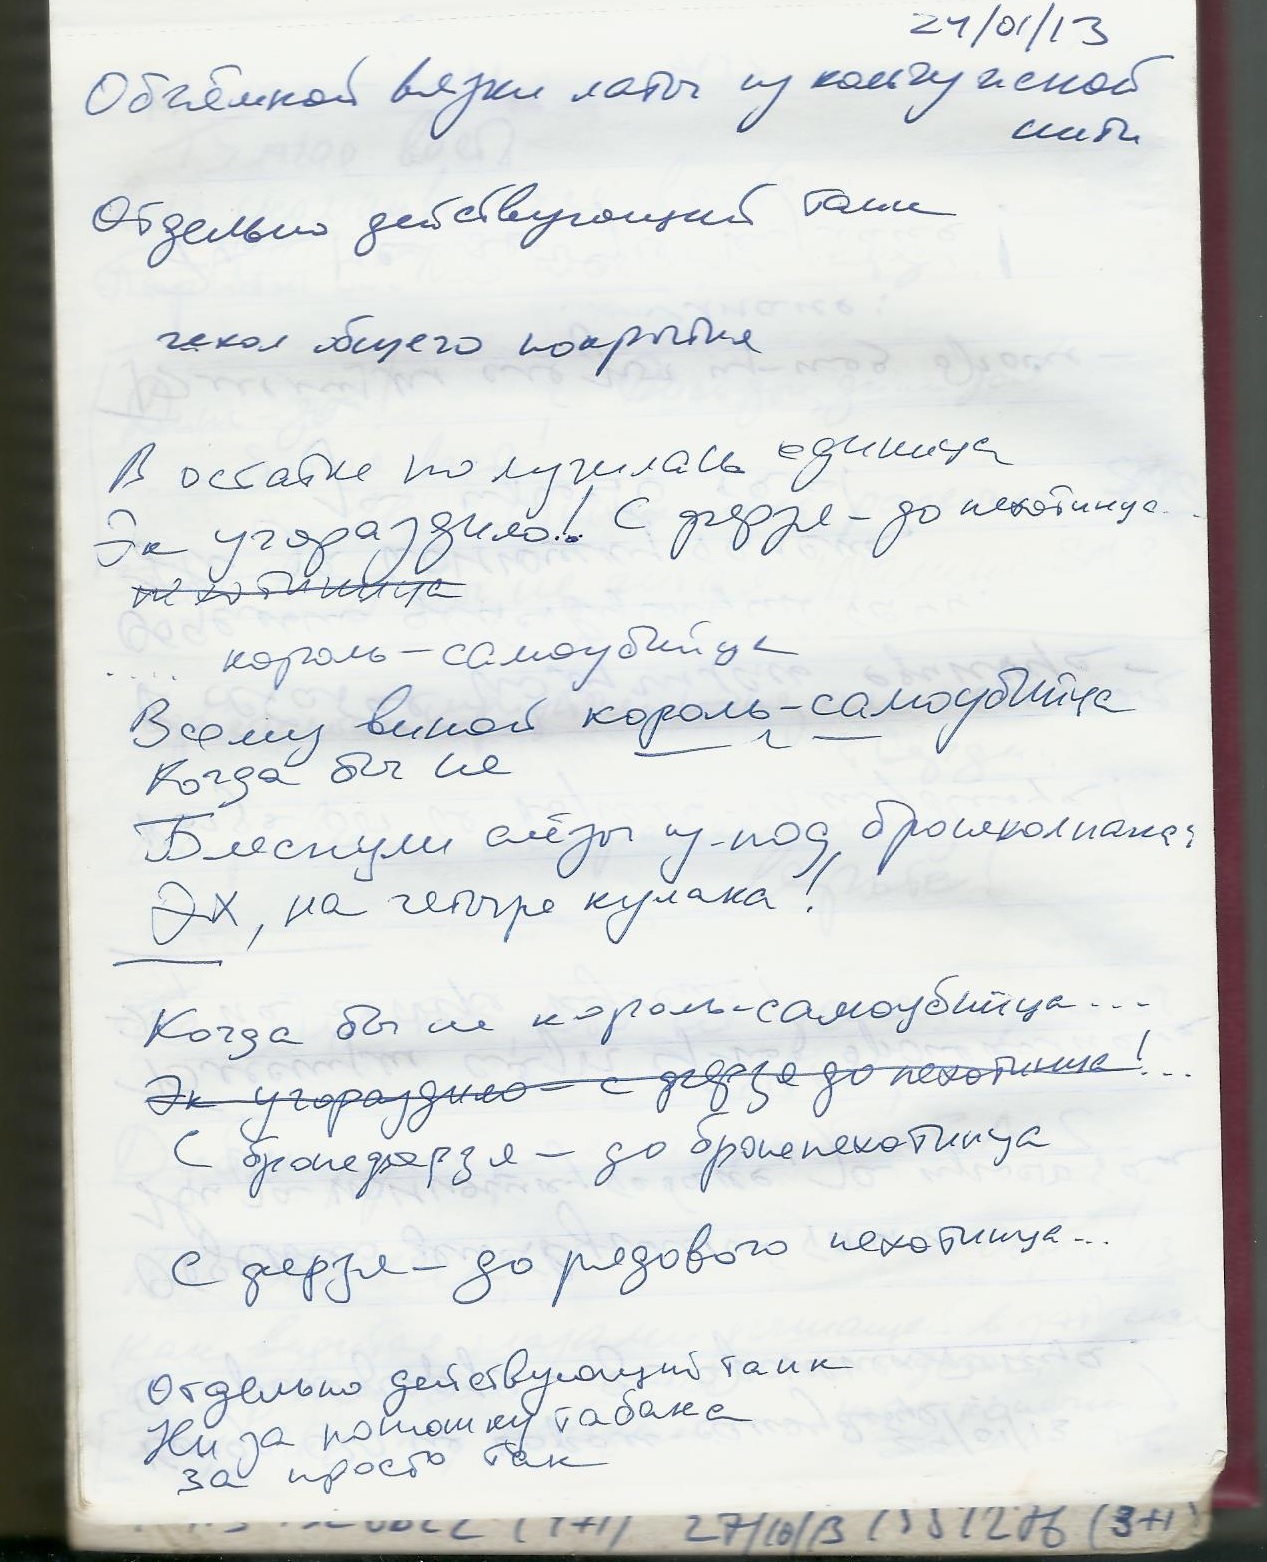 24/01/13
Объёмной вязки латы из кольчужной
нити
Отдельно действующий танк
чехол общего покрытия
В остатке получилась единица
Эк угораздило! С ферзя – до пехотинца..
пехотинца
.... король-самоубийца
Всему виной король-самоубийца
Когда бы не
Блеснули слёзы из-под бронеколпака
Эх, на четыре кулака!
Когда бы не король-самоубийца...
Эк угораздило – с ферзя до пехотинца!...
С бронеферзя – до бронепехотинца
С ферзя – до рядового пехотинца...
Отдельно действующий танк
Ни за понюшку табака
за просто так
27/10/13 (3+1)